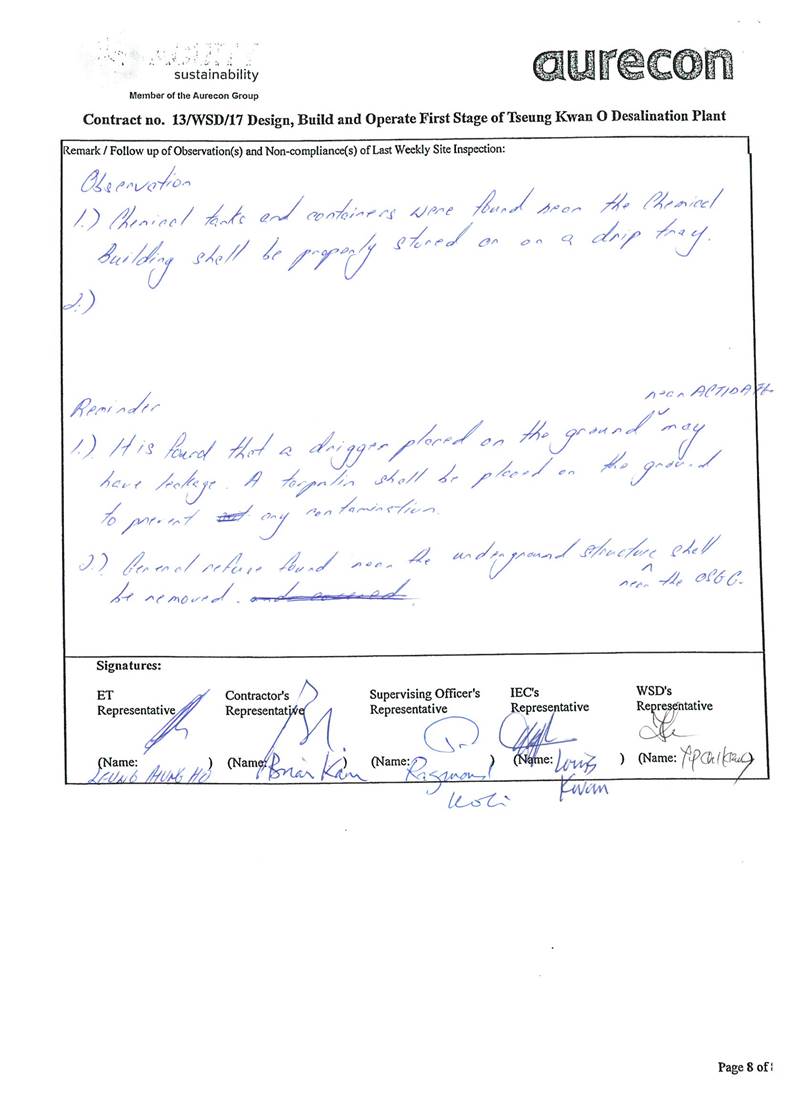 sustainability
aurecon
Member of the Aurecon Group
Contract no. 13/WSD/17 Design, Build and Operate First Stage of Tseung Kwan O Desalination Plant
Remark / Follow up of Observation(s) and Non-compliance(s) of Last Weekly Site Inspection:
Observation
1.) Chemical tanks and containers were found near the Chemical
Building shall be properly stored on on a drip tray.
2.)
Reminder
near
1.) It is found that a drigger placed on the ground may
have leakage. A tarpulin shall be placed on the ground
to prevent any contamination.
2.) General refuse found near the underground structure shall
near the OSCG.
be removed.
Signatures:
ET Contractor's Supervising Officer's IEC's WSD's
Representative Representative Representative Representative Representative
(Name: ) (Name: ) (Name: ) (Name: ) (Name: )
LEUNG CHUNG HO Brian Kam Raymond Louis
Kwan
Page 8 of